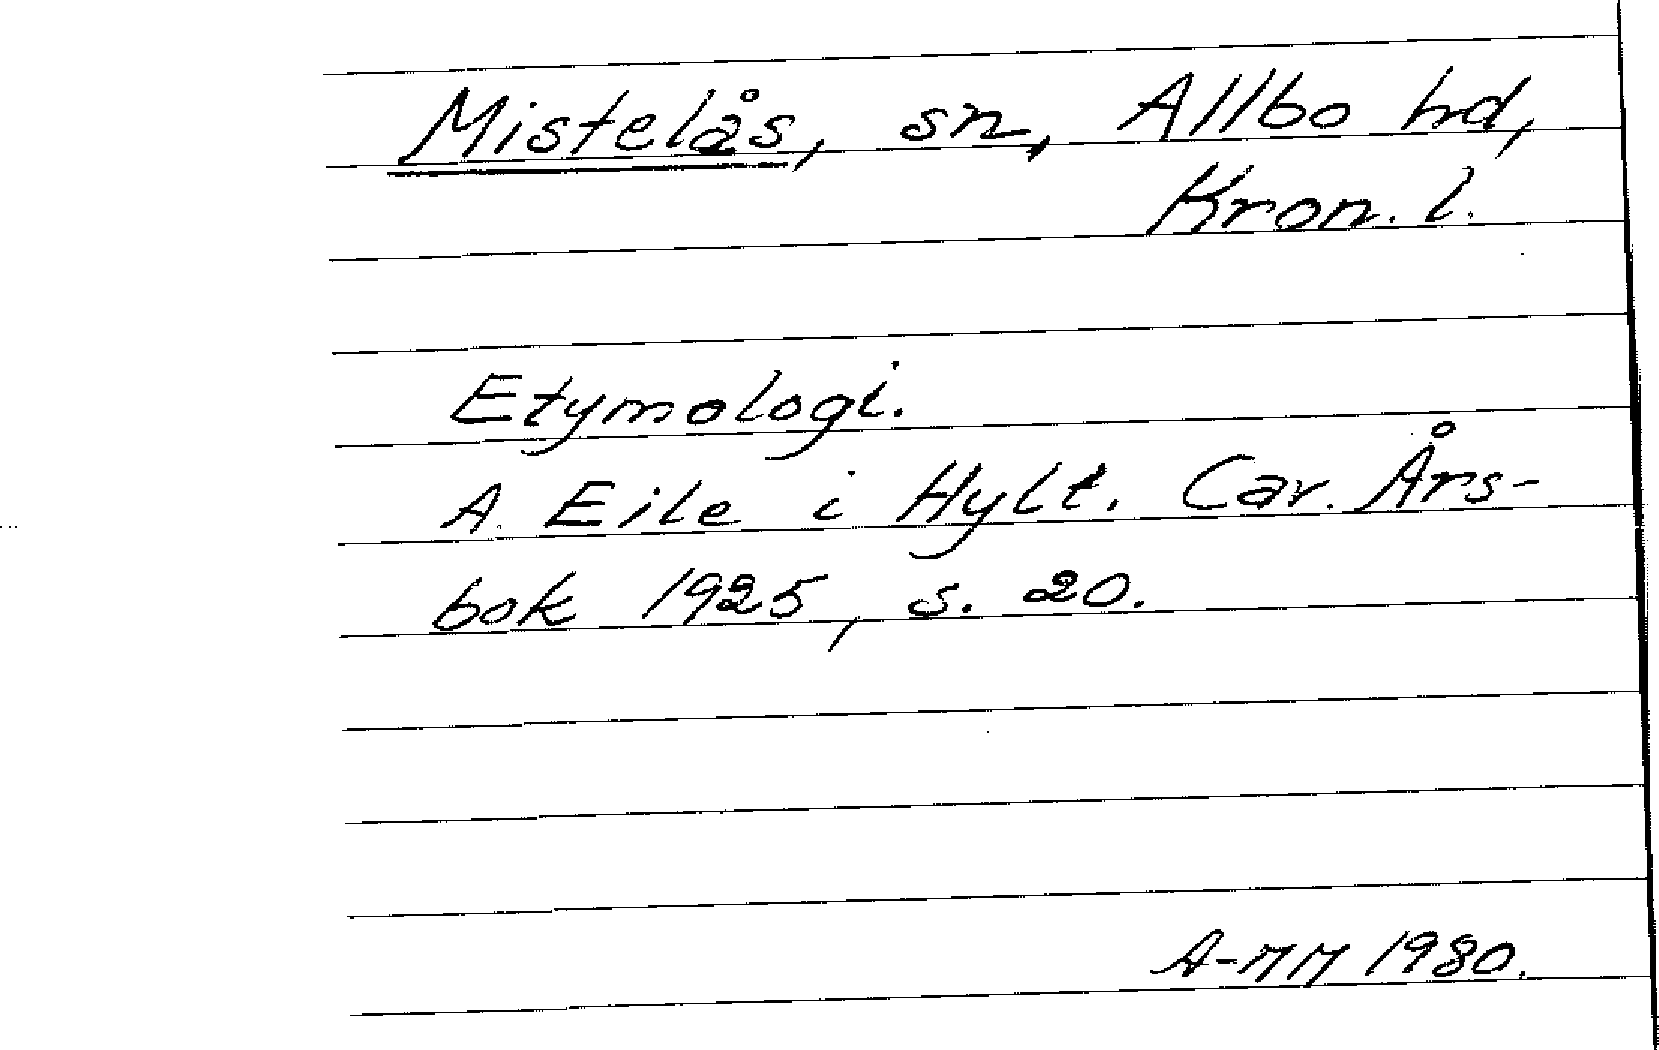 Mistelås, sn, Allbo hd,
Kron. l.
Etymologi.
A. Eile i Hylt. Cav. Års-
bok 1925, s. 20.
A-MM 1980.